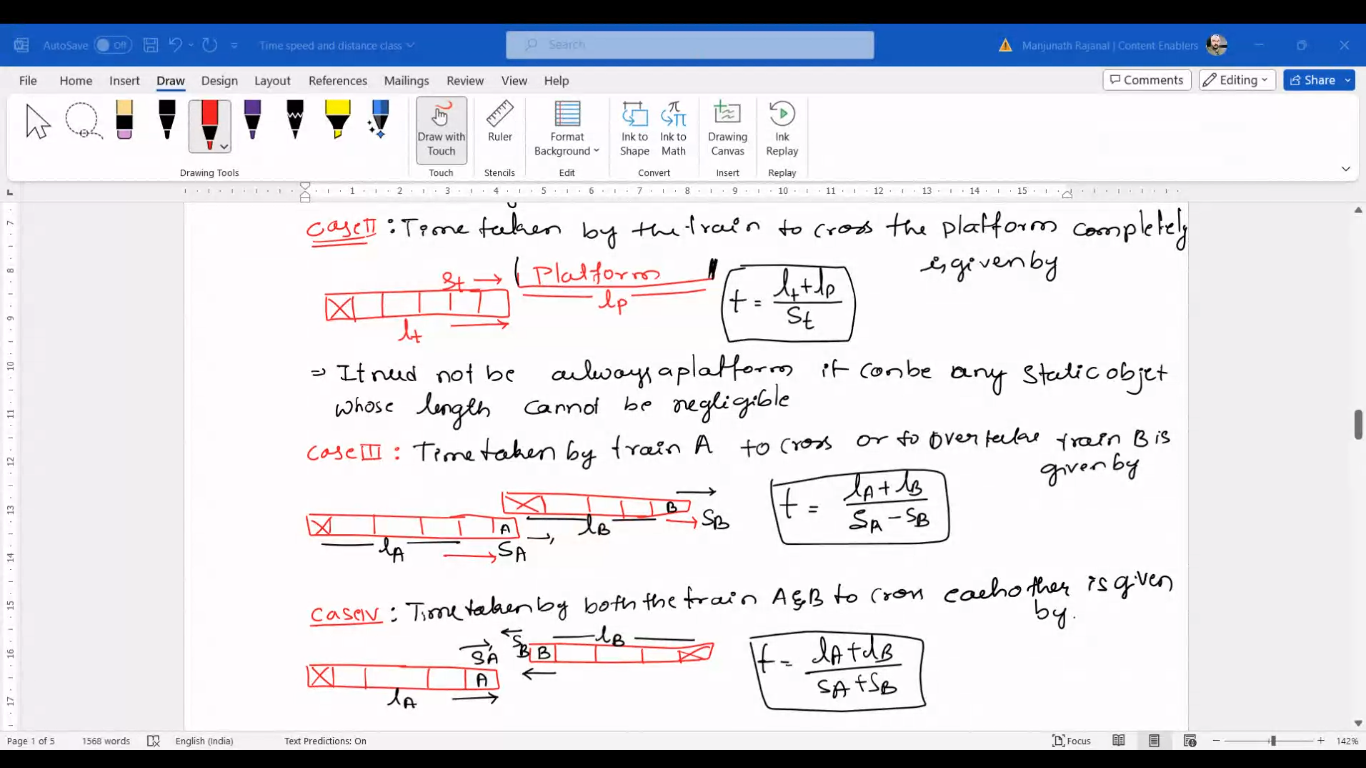 AutoSave Off Time speed and distance class Search Manjunath Rajanal | Content Enablers
File Home Insert Draw Design Layout References Mailings Review View Help Comments Editing Share
Draw with Touch Ruler Format Background Ink to Shape Ink to Math Drawing Canvas Ink Replay
Drawing Tools Touch Stencils Edit Convert Insert Replay
1 2 3 4 5 6 7 8 9 10 11 12 13 14 15
7
8
9
10
11
12
13
14
15
16
17
Case II : Time taken by the train to cross the platform completely
is given by
St Platform
lt lp
t = lt + lp / St
⇒ It need not be always a platform it can be any static objet
whose length cannot be negligible
Case III : Time taken by train A to cross or to overtake train B is
given by
A lA SA B lB SB
t = lA + lB / SA - SB
Case IV : Time taken by both the train A & B to cross eachother is given
by.
A lA SA SB B lB
t = lA + lB / SA + SB
Page 1 of 5 1568 words English (India) Text Predictions: On Focus 142%